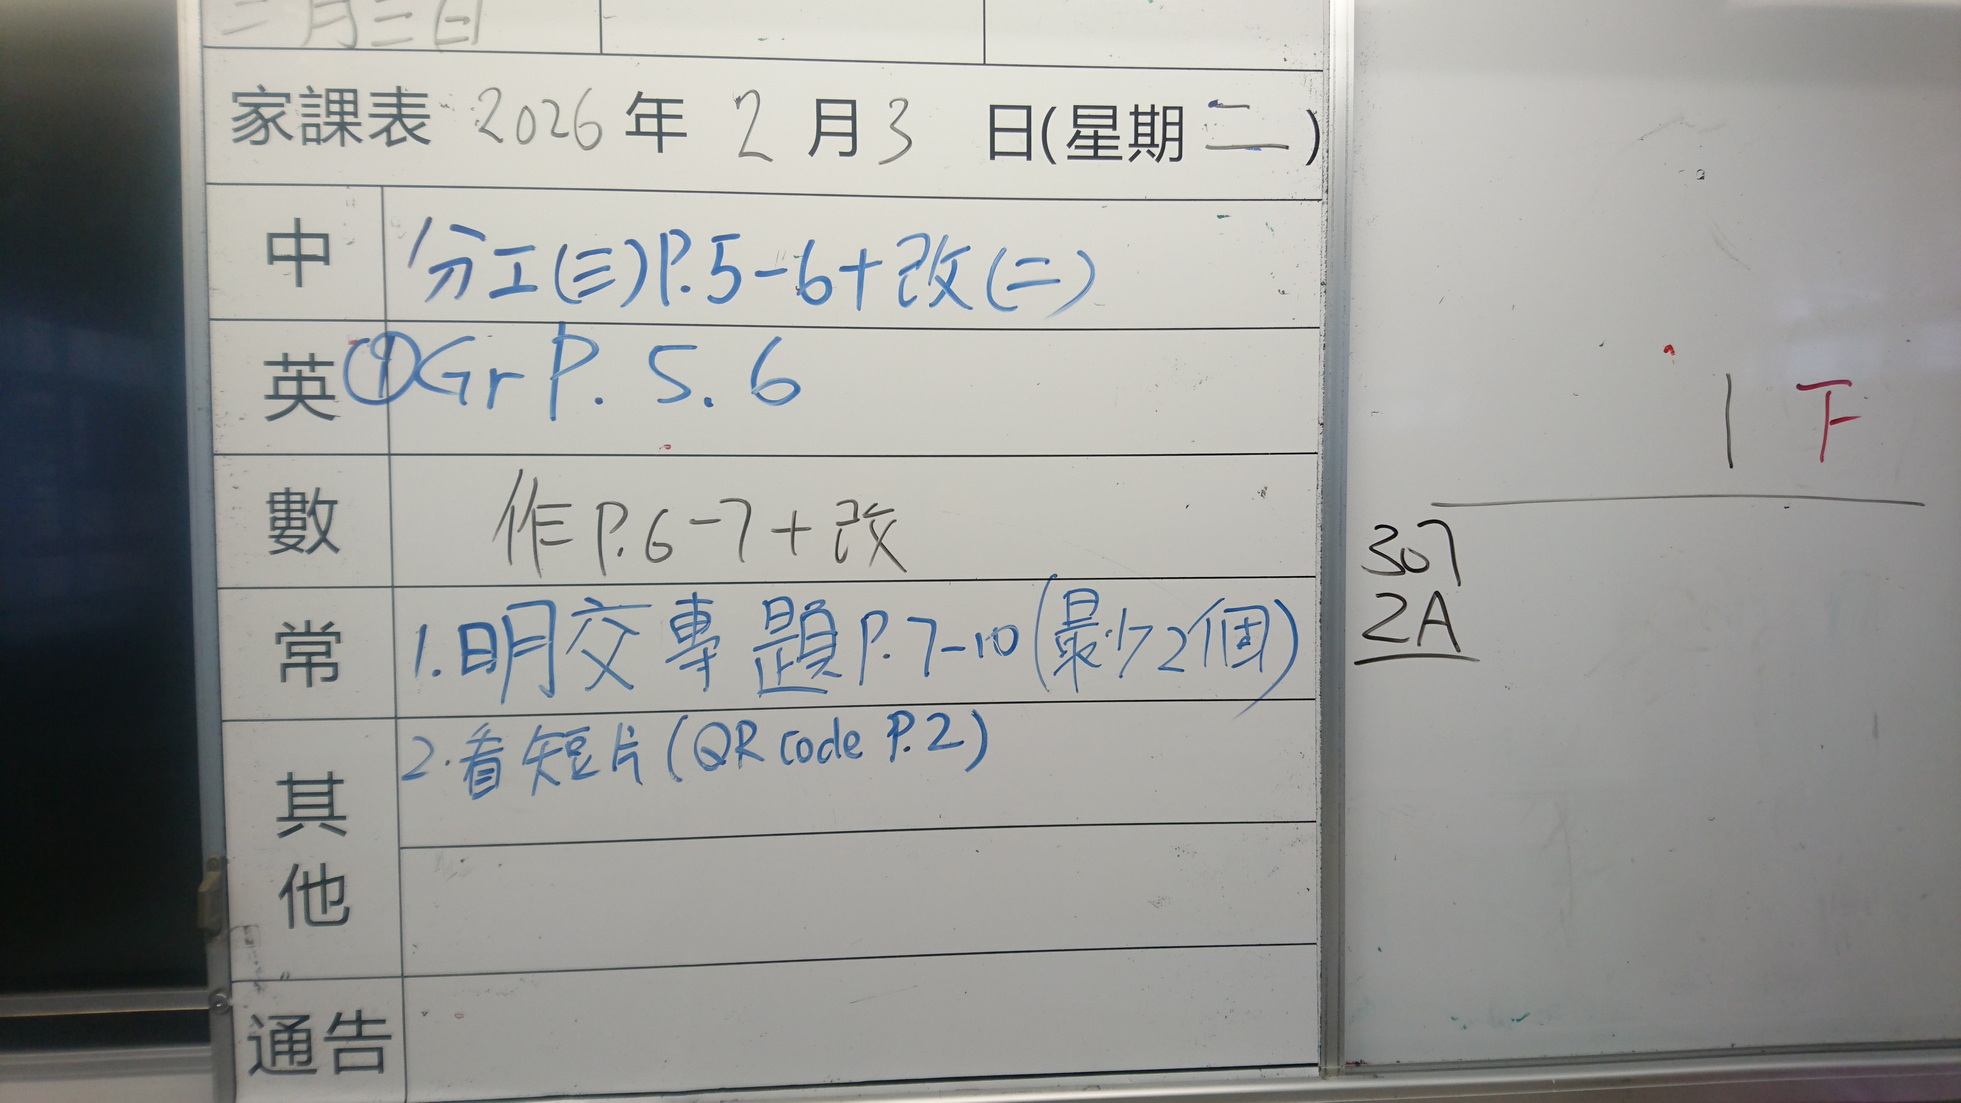 二月三日
家課表 2026 年 2 月 3 日(星期二)
中 分工(三)P.5-6+改(二)
英 ①Gr P. 5. 6
數 作P.6-7+改
常 1.明交專題P.7-10(最少2個)
其他 2.看短片(QR code P.2)
通告
1 下
307
2A